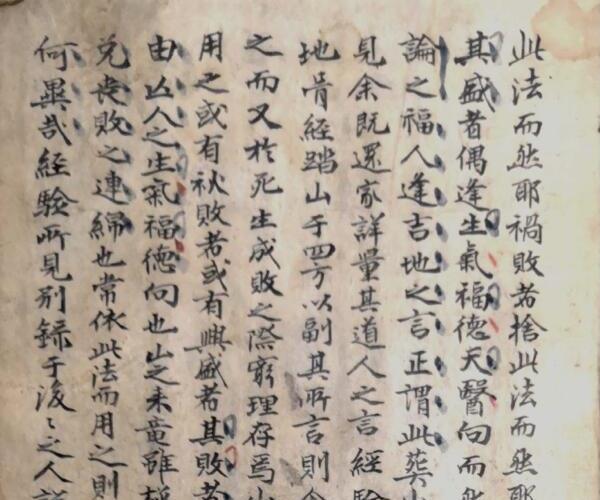 此法而然耶禍敗者捨此法而然耶
其盛者偶逢生氣福德天醫向而然
論之福人逢吉地之言正謂此葬山
見余既還家詳量其道人之言經驗
地骨經踏山于四方以副其所言則
之而又於死生成敗之際窮理存焉
用之或有秋敗者或有興盛者其敗者
由込人之生氣福德向也山之来竜雖
兌丧敗之連綿也常依此法而用之則
何異哉經驗所見別録于後〻之人